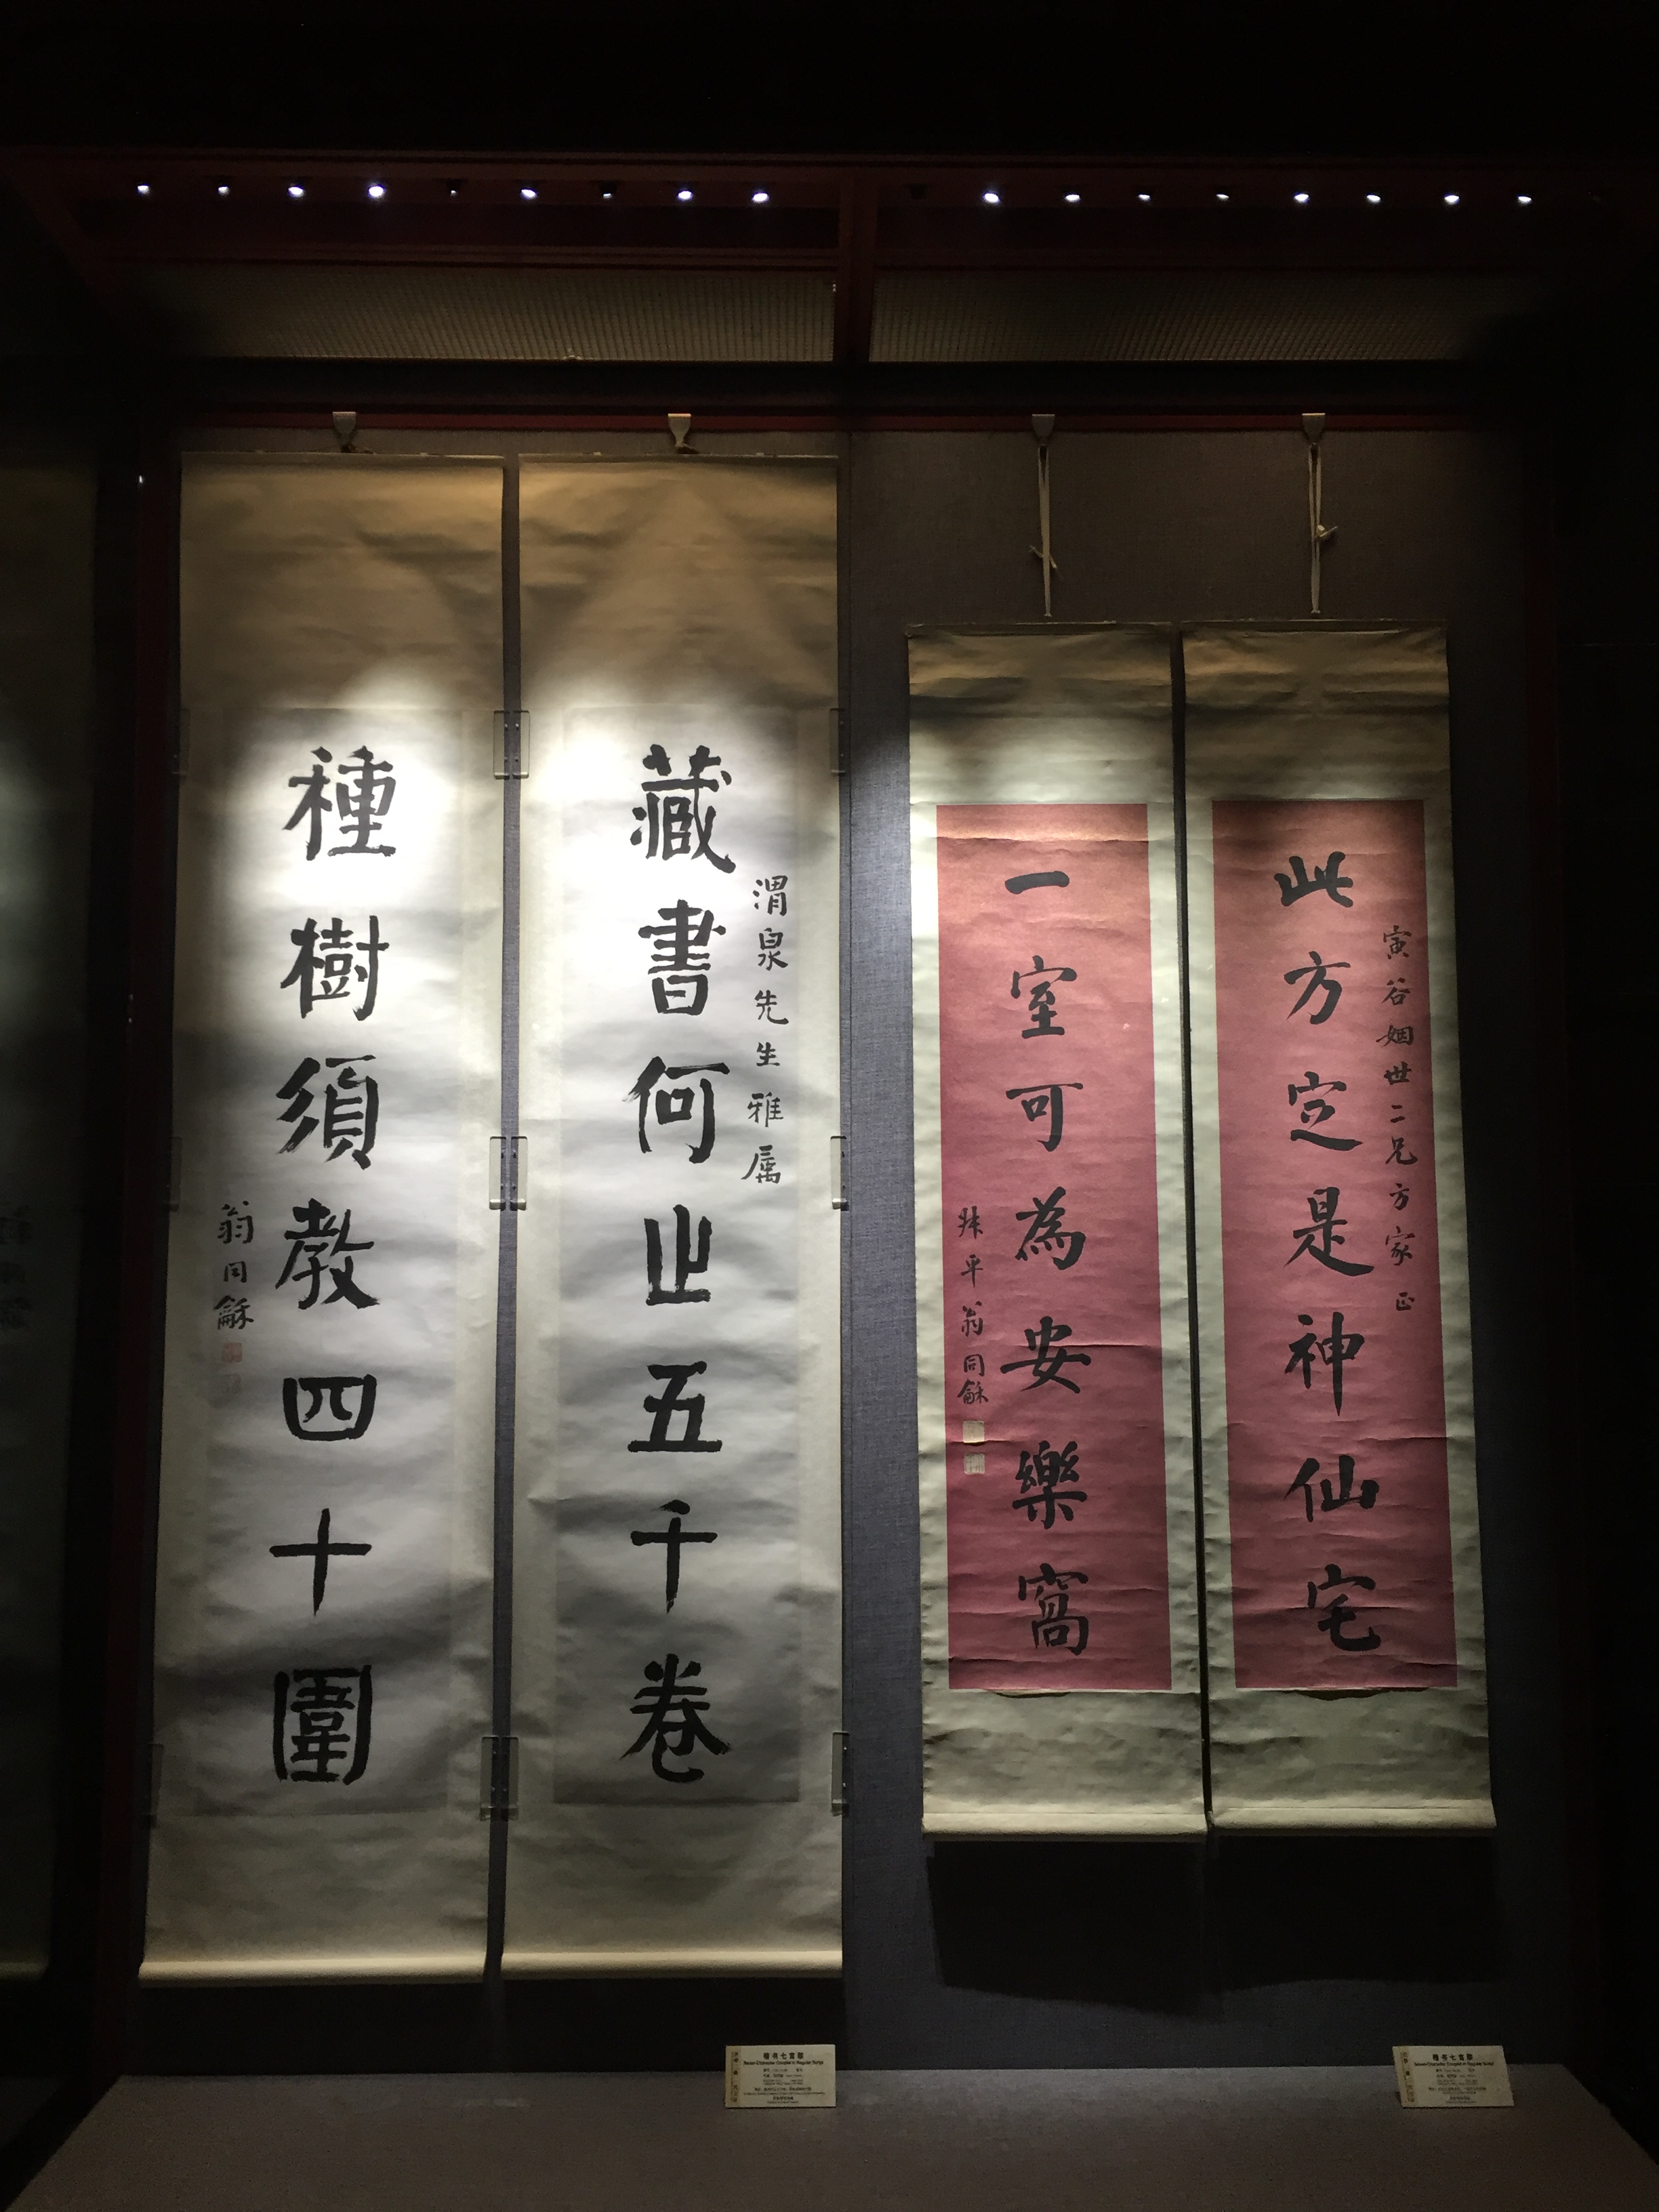 藏書何止五千卷
渭泉先生雅属
種樹須教四十圍
翁同龢
此方定是神仙宅
寅谷姻世二兄方家正
一室可為安樂窩
井平翁同龢
楷书七言联
Seven-Character Couplet in Regular Script
楷书七言联
Seven-Character Couplet in Regular Script